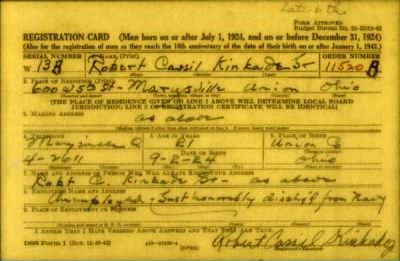 Late 6th
FORM APPROVED
REGISTRATION CARD (Men born on or after July 1, 1924, and on or before December 31, 1924)
(Also for the registration of men as they reach the 18th anniversary of the date of their birth on or after January 1, 1943.)
SERIAL NUMBER 1. NAME (Print) ORDER NUMBER
13B Robert Cassil Kinkade Jr 11520 B
2. PLACE OF RESIDENCE (Print)
600 W 5th St Marysville Union Ohio
[THE PLACE OF RESIDENCE GIVEN ON LINE 2 ABOVE WILL DETERMINE LOCAL BOARD
JURISDICTION; LINE 2 OF REGISTRATION CERTIFICATE WILL BE IDENTICAL]
3. MAILING ADDRESS
as above
4. TELEPHONE 5. AGE IN YEARS 6. PLACE OF BIRTH
Marysville O 21 Union Co
4-2611 9-2-24 Ohio
7. NAME AND ADDRESS OF PERSON WHO WILL ALWAYS KNOW YOUR ADDRESS
Kinkade Sr - as above
8. EMPLOYER'S NAME AND ADDRESS
Unemployed - Just honorably disch'g'd from Navy
9. PLACE OF EMPLOYMENT OR BUSINESS
I AFFIRM THAT I HAVE VERIFIED ABOVE ANSWERS AND THAT THEY ARE TRUE.
DSS Form 1 (OVER) Robert Cassil Kinkade Jr